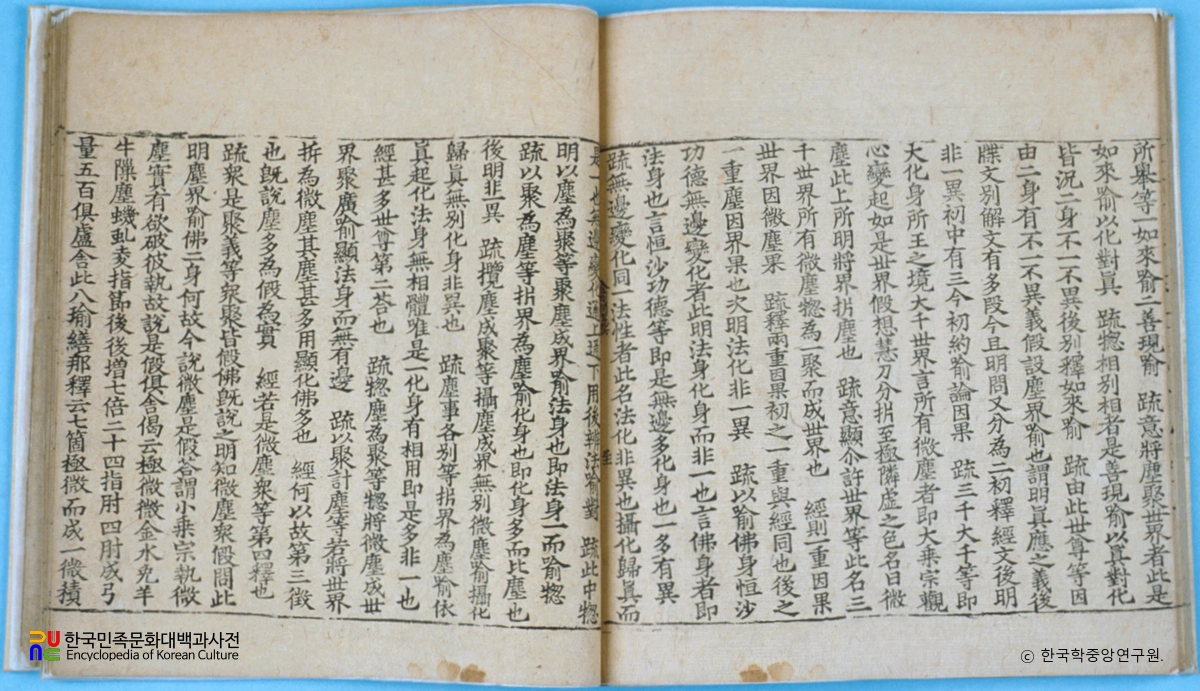 所舉等一如來喻二善現喻 疏意將塵聚世界者此是
如來喻以化對眞 疏惣相別相者是善現喻以真對化
皆況二身不一不異後別釋如來喻 疏由此世尊等因
由二身有不一不異義假設塵界喻也謂明眞應之義後
牒文別解文有多段今且明問又分為二初釋經文後明
非一異初中有三今初約喻論因果 疏三千大千等即
大化身所王之境大千世界言所有微塵者即大乗宗觀
心變起如是世界假想慧刀分析至極隣虛之色名曰微
塵此上所明將界析塵也 疏意顯今許世界等此名三
千世界所有微塵惣為一聚而成世界也 經則一重因果
世界因微塵果 疏釋兩重因果初之一重與經同也後之
一重塵因界果也次明法化非一異 疏以喻佛身恒沙
功德無邊變化者此明法身化身而非一也言佛身者即
法身也言恒沙功德等即是無邊多化身也一多有異
疏無邊變化同一法性者此名法化非異也攝化歸真而
是一也 疏此中惣
明以塵為聚等聚塵成界喻法身也即法身一而喻惣
疏以聚為塵等析界為塵喻化身也即化身多而比塵也
後明非異 疏攬塵成聚等攝塵成界無別微塵喻攝化
歸眞無別化身非異也 疏塵事各別等析界為塵喻依
眞起化法身無相體唯是一化身有相用即是多非一也
經甚多世尊第二荅也 疏惣塵為聚等惣將微塵成世
界聚廣喻顯法身而無有邊 疏以聚計塵等若將世界
拆為微塵其塵甚多用顯化佛多也 經何以故第三徴
也旣說塵多為假為實 經若是微塵衆等第四釋也
疏衆是聚義等衆聚皆假佛旣說之明知微塵衆假問此
明塵界喻佛二身何故今說微塵是假荅謂小乗宗執微
塵實有欲破彼執故說是假俱舍偈云極微微金水兔羊
牛隟塵蟣虱麥指節後後增七倍二十四指肘四肘成弓
量五百俱盧舍此八瑜繕那釋云七箇極微而成一微積
한국민족문화대백과사전
Encyclopedia of Korean Culture
© 한국학중앙연구원.